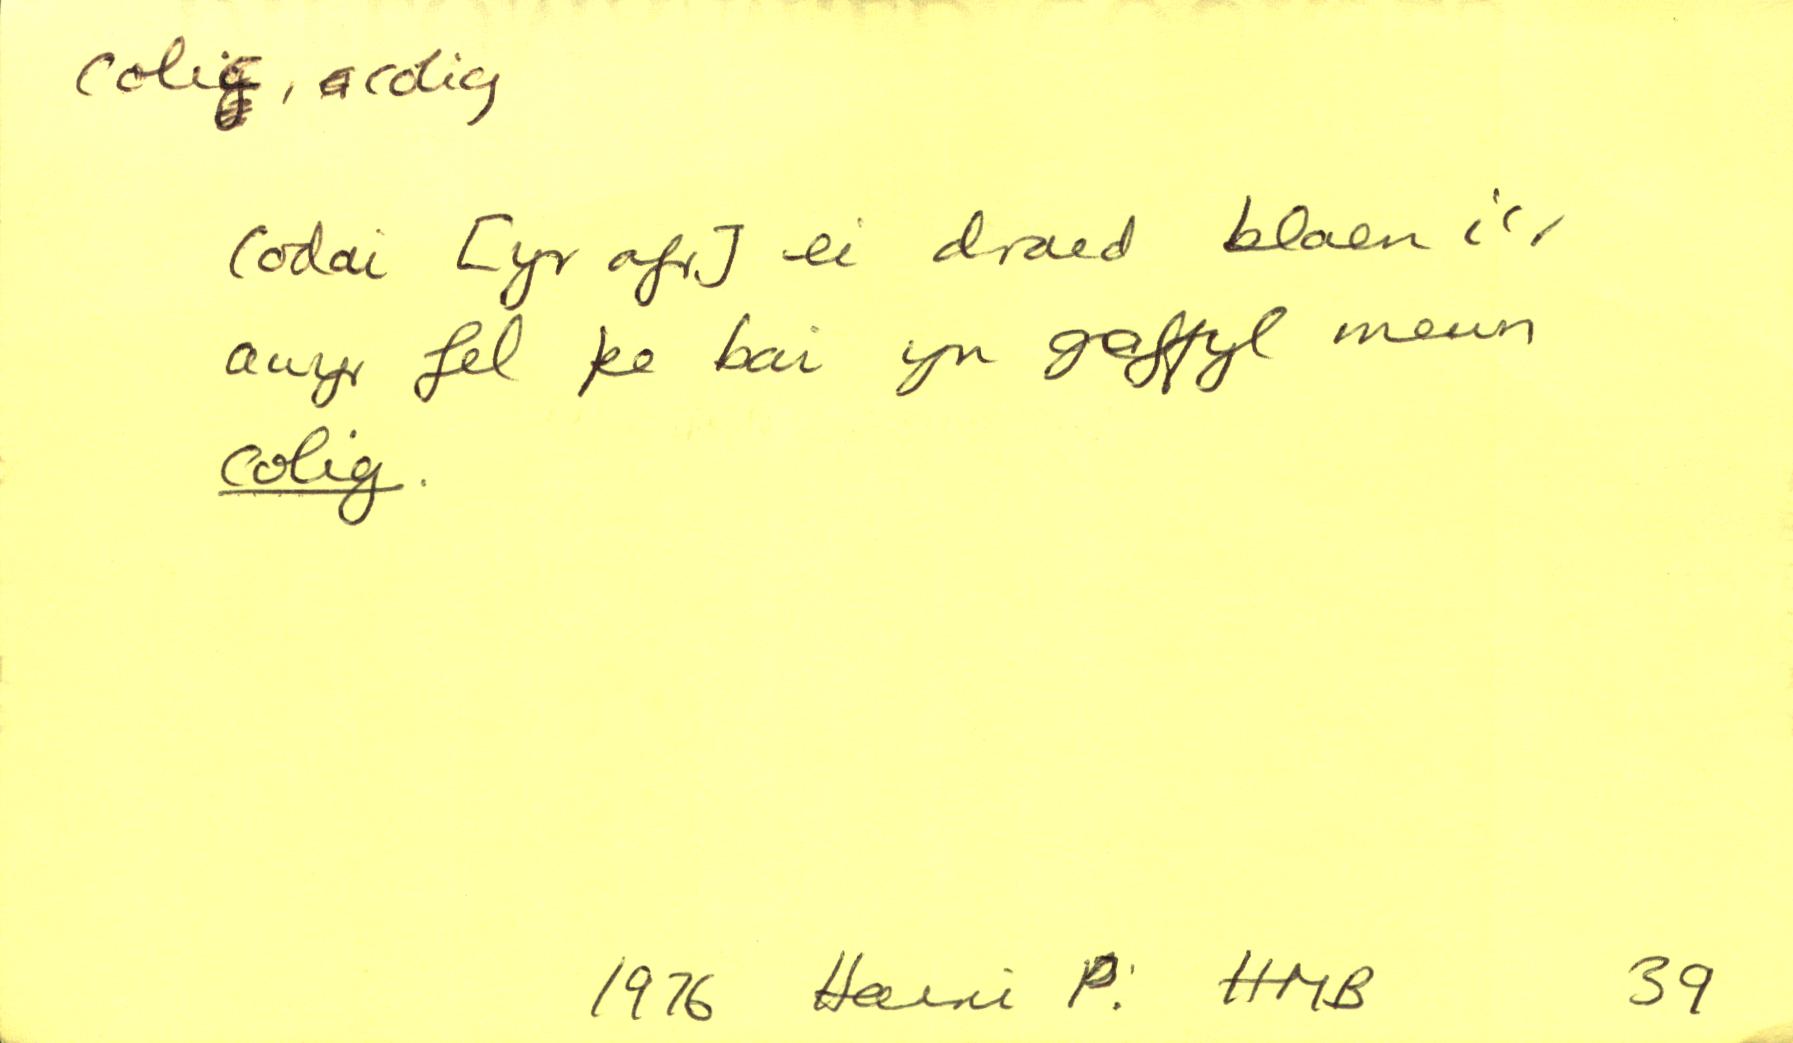 colig, acolig
Codai [yr afr] ei draed blaen i'r
awyr fel pe bai yn gaffyl mewn
colig.
1976 Harri P. HMB 39